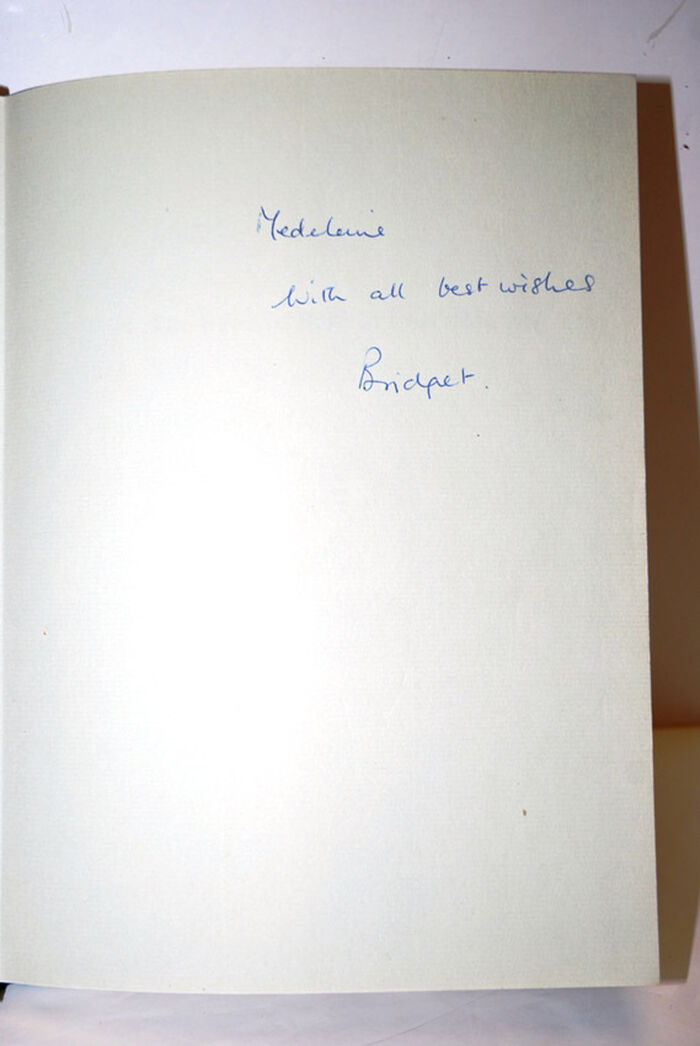 Medeleine
With all best wishes
Bridget.